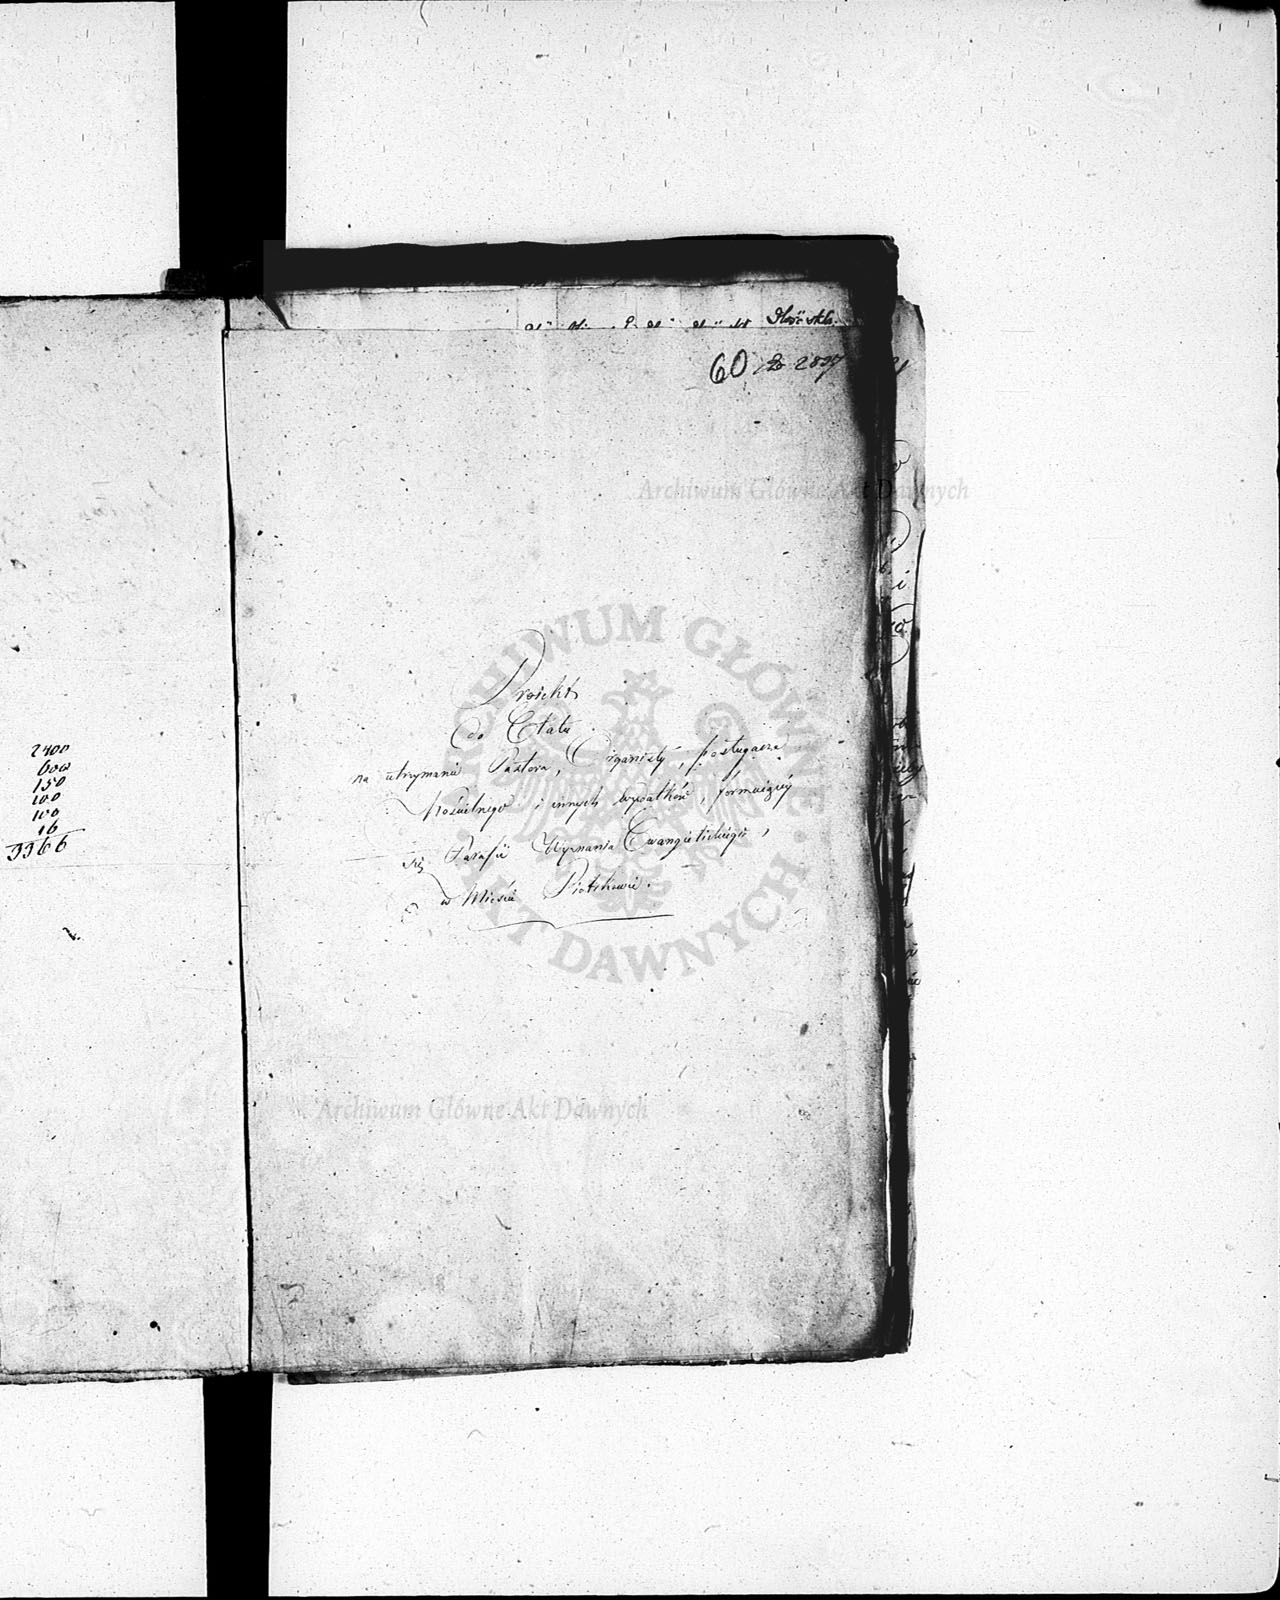 2400
600
150
100
100
16
3366
60
2897
Projekt
do Etatu
na utrzymanie Pastora, Organisty, posługacza
Kościelnego i innych wydatków, formuiącey
się Parafii Wyznania Ewangielickiego,
w Mieście Piotrkowie.
Archiwum Główne Akt Dawnych
ARCHIWUM GŁÓWNE AKT DAWNYCH
Archiwum Główne Akt Dawnych